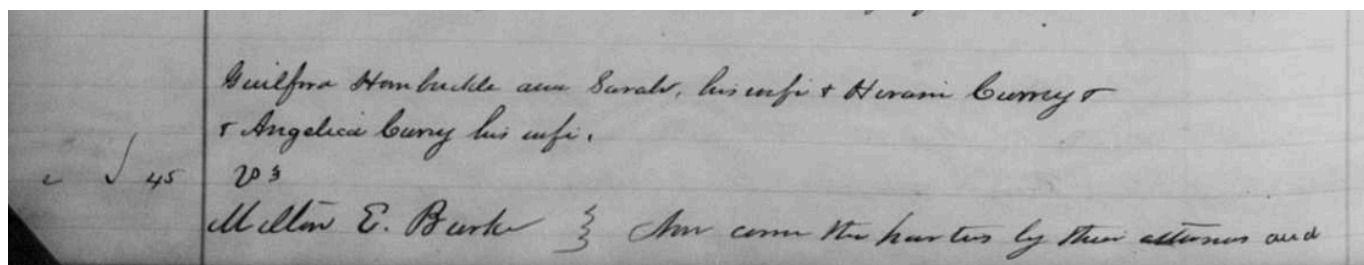 Guilford Hornbuckle and Sarah, his wife & Hiram Curry &
& Angelica Curry his wife.
45 vs
Milton E. Burke } Now come the parties by their attornies and